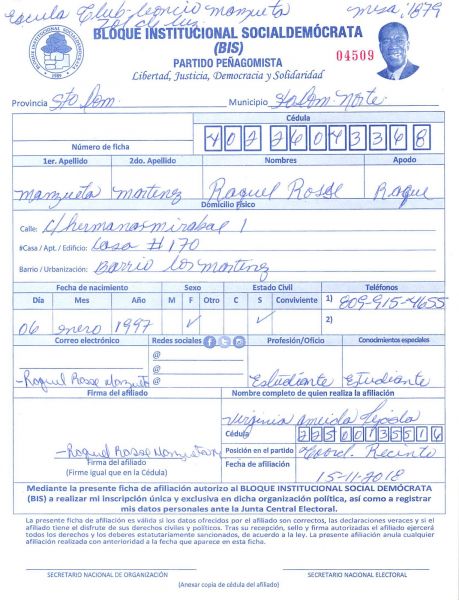 Escuela Club Leoncio Manzueta Mesa, 1879
BLOQUE INSTITUCIONAL SOCIALDEMÓCRATA
(BIS)
04509
PARTIDO PEÑAGOMISTA
Libertad, Justicia, Democracia y Solidaridad
Provincia Sto Dom. Municipio Sto Dom. Norte
Cédula
Número de ficha 40226043368
1er. Apellido 2do. Apellido Nombres Apodo
Manzueta Martinez Raquel Rosse Raque
Domicilio Físico
Calle: C/ hermanas mirabal 1
#Casa / Apt. / Edificio: Casa # 170
Barrio / Urbanización: Barrio los Martinez
Fecha de nacimiento Sexo Estado Civil Teléfonos
Día Mes Año M F Otro C S Conviviente 1) 809-915-4655
06 enero 1997 ✓ ✓ 2)
Correo electrónico Redes sociales Profesión/Oficio Conocimientos especiales
@
@
Raquel Rosse Manzueta @ Estudiante Estudiante
Firma del afiliado Nombre completo de quien realiza la afiliación
Virginia
Cédula 22500135516
Raquel Rosse Manzueta Posición en el partido Coord. Recinto
Firma del afiliado
(Firme igual que en la Cédula) Fecha de afiliación 15-11-2018
Mediante la presente ficha de afiliación autorizo al BLOQUE INSTITUCIONAL SOCIAL DEMÓCRATA
(BIS) a realizar mi inscripción única y exclusiva en dicha organización política, así como a registrar
mis datos personales ante la Junta Central Electoral.
La presente ficha de afiliación es válida si los datos ofrecidos por el afiliado son correctos, las declaraciones veraces y si el
afiliado tiene el disfrute de sus derechos civiles y políticos. Tras su recepción, sello y firma autorizadas el afiliado ejercerá
todos los derechos y los deberes estatutariamente sancionados, de acuerdo a la ley. La presente afiliación anula cualquier
afiliación realizada con anterioridad a la fecha que aparece en esta ficha.
SECRETARIO NACIONAL DE ORGANIZACIÓN SECRETARIO NACIONAL ELECTORAL
(Anexar copia de cédula del afiliado)